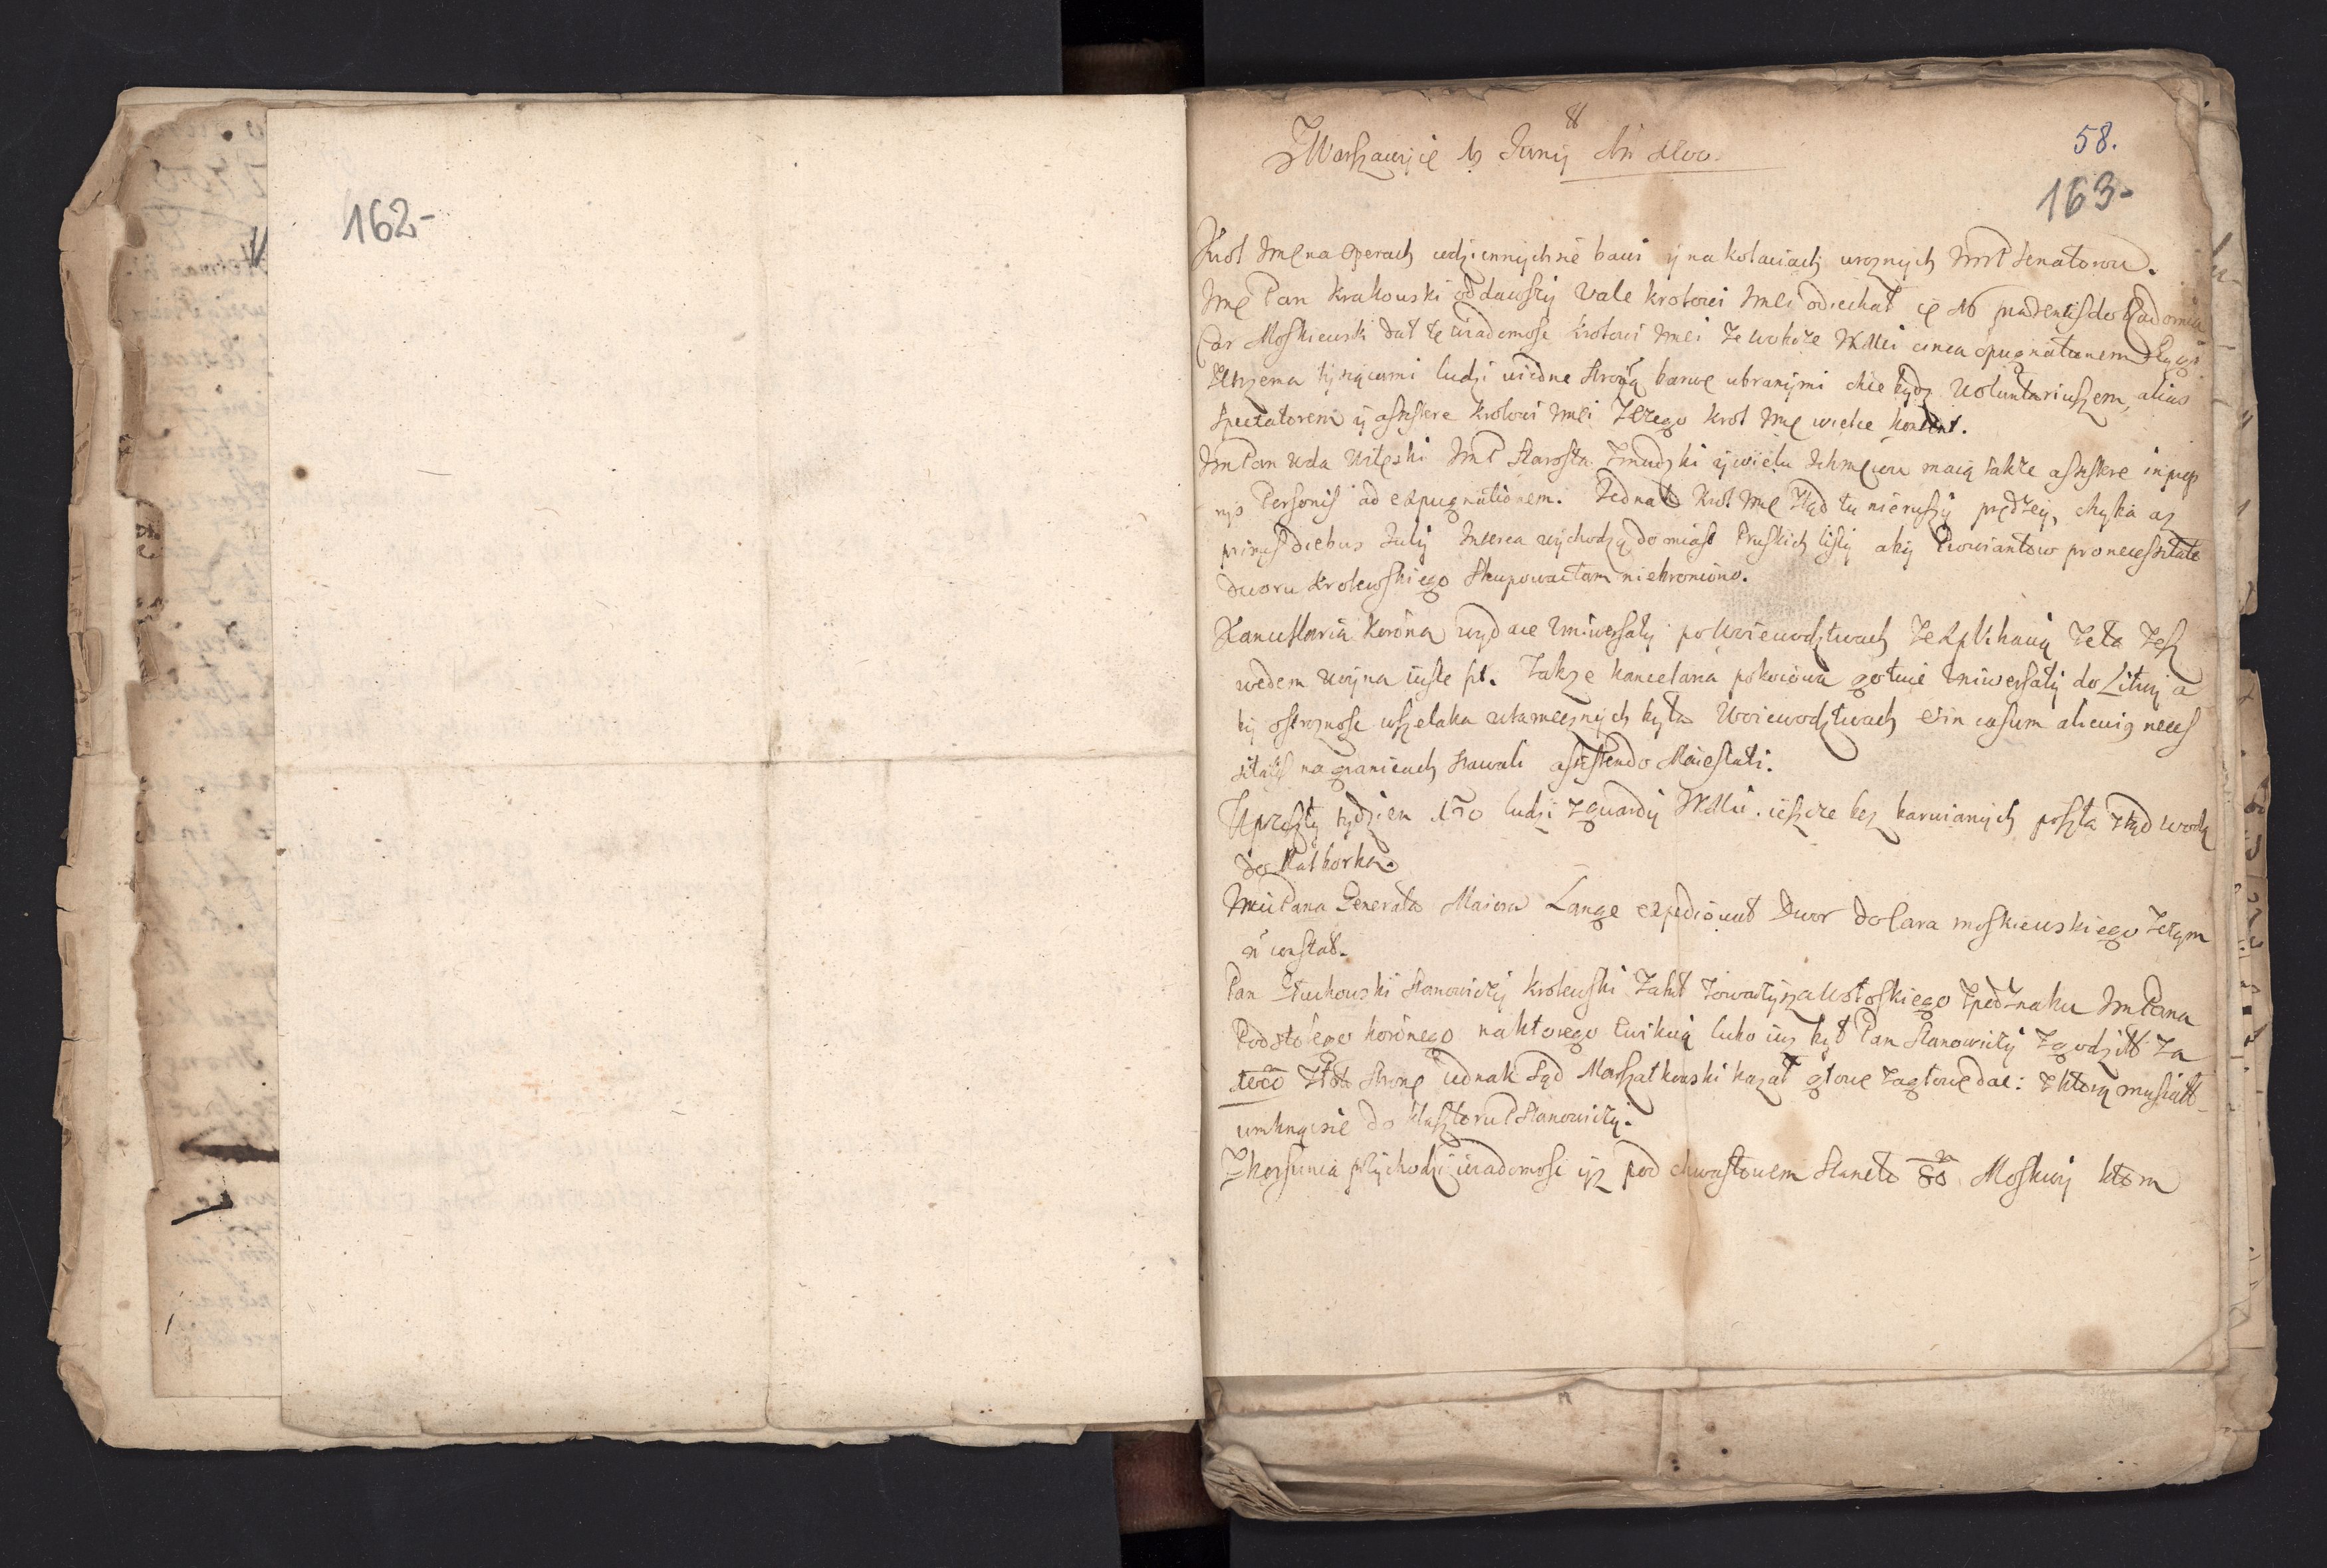 162-
58.
163-
Z Warszawy die 18 Juny An 1700.
Krol Jmę na operach codziennych się bawi y na kolaciach uroznych ImP Senatorow.
Jmę Pan Krakowski oddawszy Vale krolowi Jmci odiechał die 16 praesentis do Radomia
Car Moskiewski dał tę wiadomosc krolowi Jmci ze w obozie JKMci circa opugnationem Rygi
trzema tysiącami ludzi w iedne stroią barwę ubranymi chce bydz Voluntariuszem, alias
Spectatorem y assistere krolowi Jmci z czego krol Jmę wielce kontent.
Jm Pan Wda Witepski JmP Starosta Zmudzki y wielu Ichmciow maią także assistere in prop
rys Personis ad expugnationem. Jednak krol Jmę ztąd tu nie ruszy prędzey, chyba az
primis diebus July Interea wychodzą do miast Pruskich listy aby Prowiantow pro necessitate
dworu krolewskiego skupowac tam nie broniono.
Kancellaria koronna wydaie Uniwersały po Woiewodztwach ze ta ze Sz
wedem woyna iuste sit. Takze kancelaria pokoiowa gotuie Uniwersały do Litwy a
by ostroznosc wszelaka w tamecznych była Woiewodztwach et in casum alicuius neces
sitatis na granicach stawali assistendo Maiestati.
W przeszły tydzien 150 ludzi z gwardyi JKMci ieszcze bez barwianych poszła ztąd wodą
do Malborka.
Jmci Pana Generała Maiora Lange expediował Dwor do Cara moskiewskiego z czym
ñ constat.
Pan Głuchowski Stanowniczy krolewski zabił Towarzysza Wołoskiego z pod znaku Jm Pana
Podstolego koronnego na ktorego lubo iuz był Pan Stanowniczy zgodził za
złot stronę iednak Sąd Marszałkowski kazał głowę za głowę dac: z ktorą musiał
umknąc się do klasztoru P Stanowniczy.
Z Korsunia przychodzi wiadomosc iz pod chwastowem staneło 80 Moskwy ktora